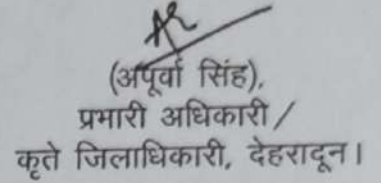 (अपूर्वा सिंह),
प्रभारी अधिकारी /
कृते जिलाधिकारी, देहरादून।